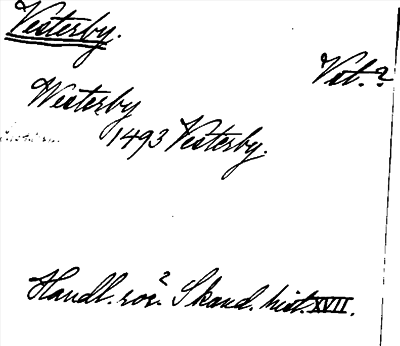 Vesterby.
Vet.?
Westerby
1493 Vesterby.
Handl. rör? Skand. hist. XVII.